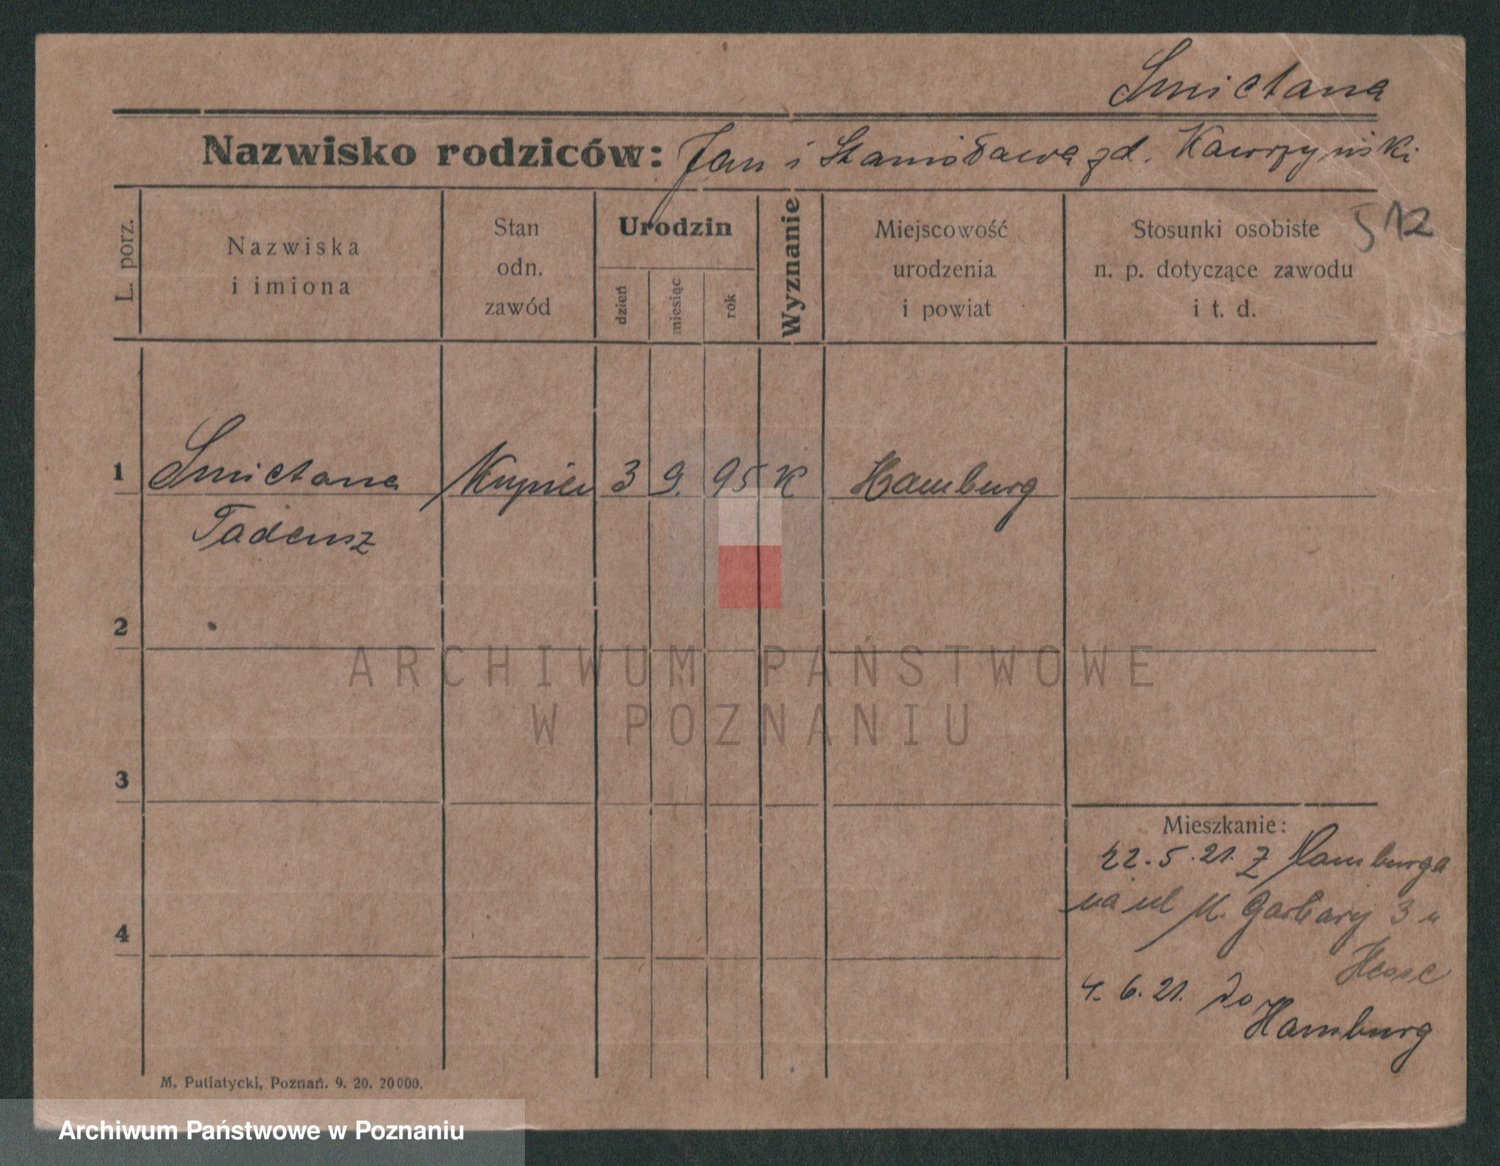 Smietana
Nazwisko rodziców: Jan i Stanisława zd. Kawrzyński
L. porz.
Nazwiska
i imiona
Stan
odn.
zawód
Urodzin
dzień
miesiąc
rok
Wyznanie
Miejscowość
urodzenia
i powiat
Stosunki osobiste
n. p. dotyczące zawodu
i t. d.
512
1 Smietana Kupiec 3 9. 95 K Hamburg
Tadeusz
2
3
4
Mieszkanie:
22.5.21. z Hamburga
na ul M. Garbary 3 u
4.6.21. do
Hamburg
M. Putiatycki, Poznań. 9. 20. 20000.
ARCHIWUM PAŃSTWOWE
W POZNANIU
Archiwum Państwowe w Poznaniu